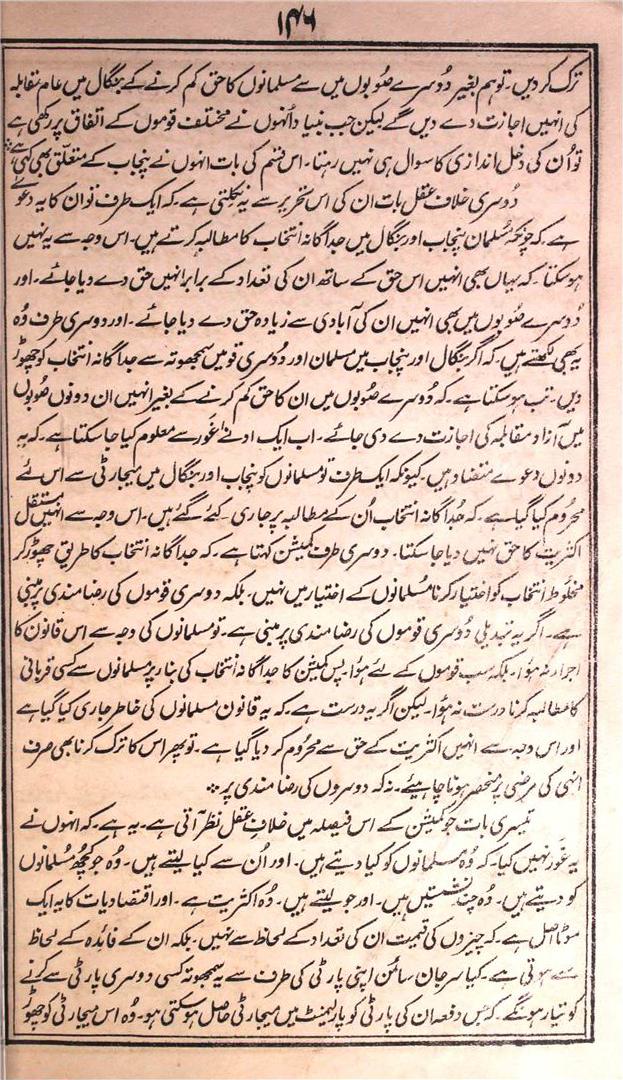 ۱۴۶
ترک کر دیں۔ تو ہم بغیر دوسرے صوبوں میں سے مسلمانوں کا حق کم کرنے کے بنگال میں عام مقابلہ
کی انہیں اجازت دے دیں گے لیکن جب بنیاد انہوں نے مختلف قوموں کے اتفاق پر رکھی ہے
تو اُن کی دخل اندازی کا سوال ہی نہیں رہتا۔ اس قسم کی بات انہوں نے پنجاب کے متعلق بھی کہی ہے
دوسری خلافِ عقل بات ان کی اس تحریر سے یہ نکلتی ہے۔ کہ ایک طرف تو ان کا یہ دعوےٰ
ہے۔ کہ چونکہ مسلمان پنجاب اور بنگال میں جداگانہ انتخاب کا مطالبہ کرتے ہیں۔ اس وجہ سے یہ نہیں
ہو سکتا۔ کہ یہاں بھی انہیں اس حق کے ساتھ ان کی تعداد کے برابر انہیں حق دے دیا جائے۔ اور
دُوسرے صوبوں میں بھی انہیں ان کی آبادی سے زیادہ حق دے دیا جائے۔ اور دوسری طرف وُہ
یہ بھی لکھتے ہیں۔ کہ اگر بنگال اور پنجاب میں مسلمان اور دوسری قومیں سمجھوتہ سے جداگانہ انتخاب کو چھوڑ
دیں۔ تب ہو سکتا ہے۔ کہ دُوسرے صوبوں میں ان کا حق کم کرنے کے بغیر انہیں ان دونوں صُوبوں
میں آزاد مقابلہ کی اجازت دے دی جائے۔ اب ایک ادنےٰ غور سے معلوم کیا جا سکتا ہے۔ کہ یہ
دونوں دعوے متضاد ہیں۔ کیونکہ ایک طرف تو مسلمانوں کو پنجاب اور بنگال میں میجارٹی سے اس لئے
محروم کیا گیا ہے۔ کہ جُداگانہ انتخاب اُن کے مطالبہ پر جاری کئے گئے ہیں۔ اس وجہ سے انہیں مستقل
اکثریت کا حق نہیں دیا جا سکتا۔ دوسری طرف کمیشن کہتا ہے۔ کہ جداگانہ انتخاب کا طریق چھوڑ کر
مخلوط انتخاب کو اختیار کرنا مُسلمانوں کے اختیار میں نہیں۔ بلکہ دوسری قوموں کی رضامندی پر مبنی
ہے۔ اگر یہ تبدیلی دُوسری قوموں کی رضامندی پر مبنی ہے۔ تو مسلمانوں کی وجہ سے اس قانون کا
اجراء نہ ہوا۔ بلکہ سب قوموں کے لئے ہوا۔ پس کمیشن کا جداگانہ انتخاب کی بناء پر مسلمانوں سے کسی قربانی
کا مطالبہ کرنا درست نہ ہوا۔ لیکن اگر یہ درست ہے۔ کہ یہ قانون مسلمانوں کی خاطر جاری کیا گیا ہے
اور اس وجہ سے انہیں اکثریت کے حق سے محروم کر دیا گیا ہے۔ تو پھر اس کا ترک کرنا بھی صرف
انہی کی مرضی پر منحصر ہونا چاہیئے۔ نہ کہ دوسروں کی رضامندی پر
تیسری بات جو کمیشن کے اس فیصلہ میں خلافِ عقل نظر آتی ہے۔ یہ ہے۔ کہ انہوں نے
یہ غور نہیں کیا۔ کہ وُہ مسلمانوں کو کیا دیتے ہیں۔ اور اُن سے کیا لیتے ہیں۔ وُہ جو کچھ مُسلمانوں
کو دیتے ہیں۔ وُہ چند نشستیں ہیں۔ اور جو لیتے ہیں۔ وُہ اکثریت ہے۔ اور اقتصادیات کا یہ ایک
موٹا اصل ہے۔ کہ چیزوں کی قیمت ان کی تعداد کے لحاظ سے نہیں۔ بلکہ ان کے فائدہ کے لحاظ
سے ہوتی ہے۔ کیا سر جان سائمن اپنی پارٹی کی طرف سے یہ سمجھوتہ کسی دوسری پارٹی سے کرنے
کو تیار ہونگے۔ کہ جس دفعہ ان کی پارٹی کو پارلیمنٹ میں میجارٹی حاصل ہو سکتی ہو۔ وُہ اس میجارٹی کو چھوڑ